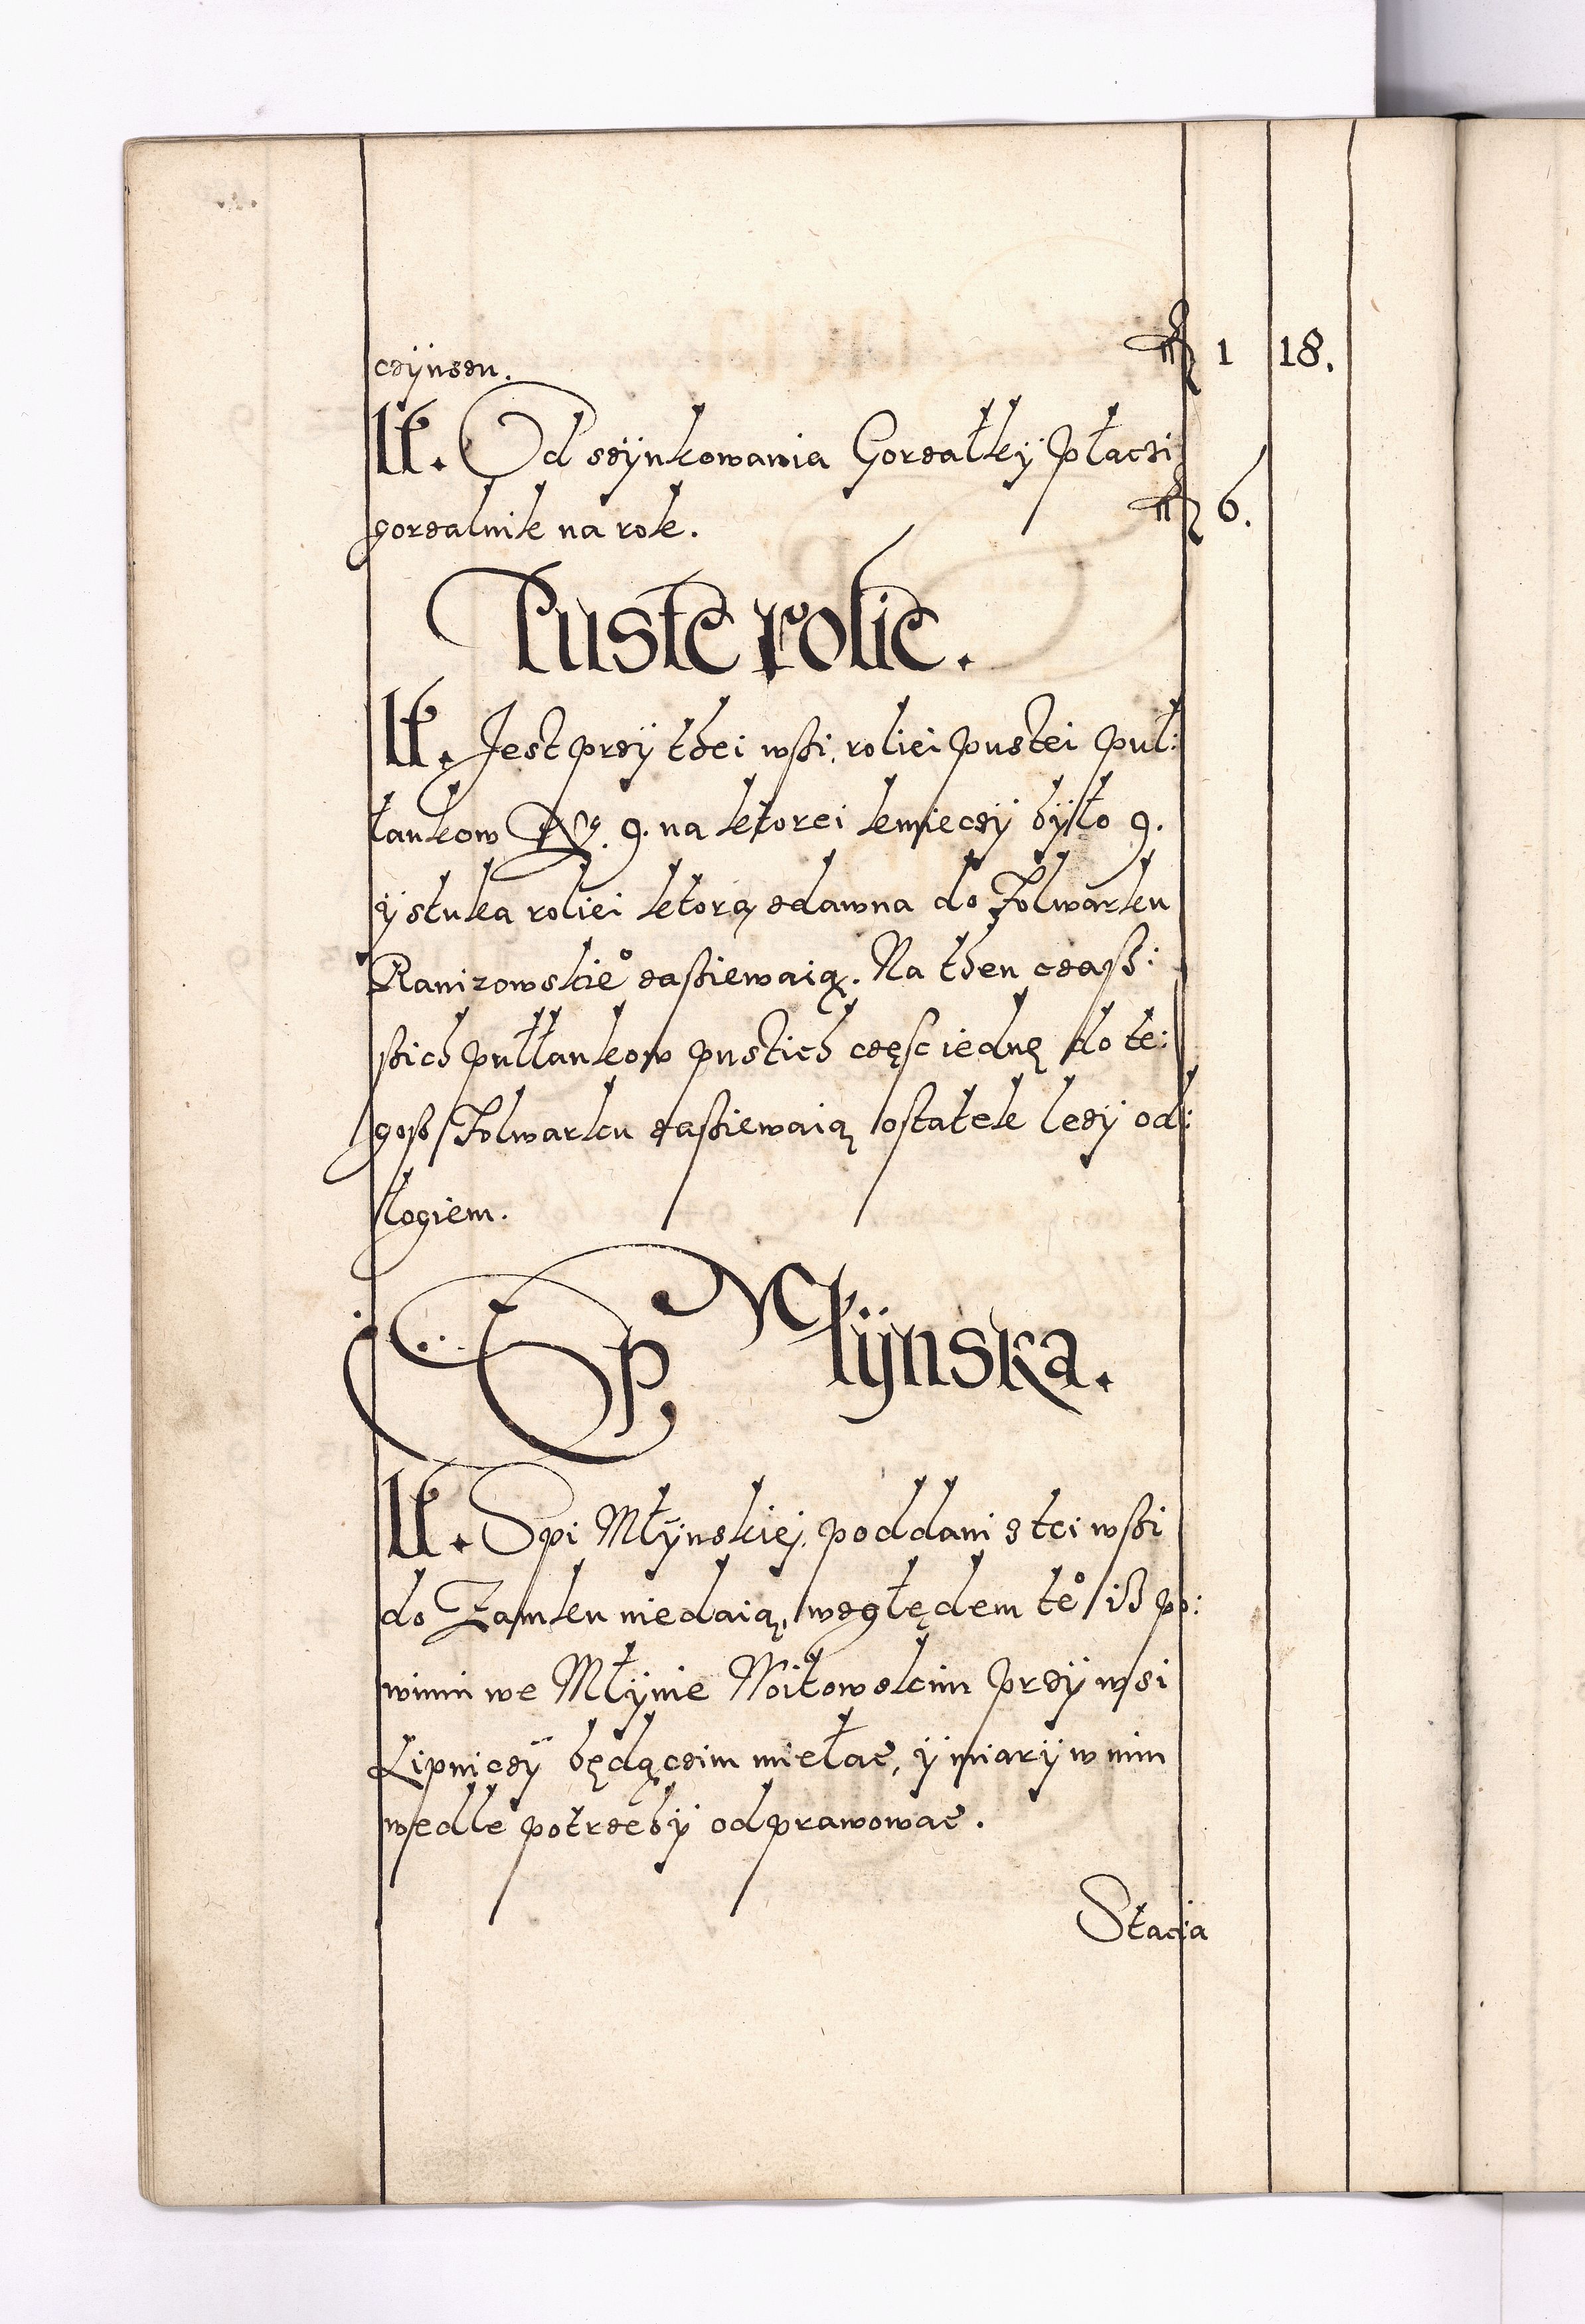 czÿnszu. fl 1 18.
It. Od szÿnkowania Gorzałkÿ płaczi
gorzalnik na rok. fl 6.
Puste rolie.
It. Jest przÿ thei wßi, roliei pustei puł:
łankow Nº. 9. na ktorei kmieczÿ bÿło 9.
ÿ stuka roliei ktorą zdawna do Folwarku
Ranizowskie° zaßiewaią. Na then czaß:
ßich pułłankow pustich częsc iednę do te:
goß Folwarku zaßiewaią ostatek leżÿ od:
łogiem.
Sp. Młÿnska.
It. Spi Młÿnskiej, poddani z tei wßi
do Zamku niedaią, względem te° iß po:
winni we Młÿnie Woitowskim przÿ wsi
Lipniczÿ będączim miełac, ÿ miarÿ w nim
wedle potrzebÿ odprawowac.
Stacia